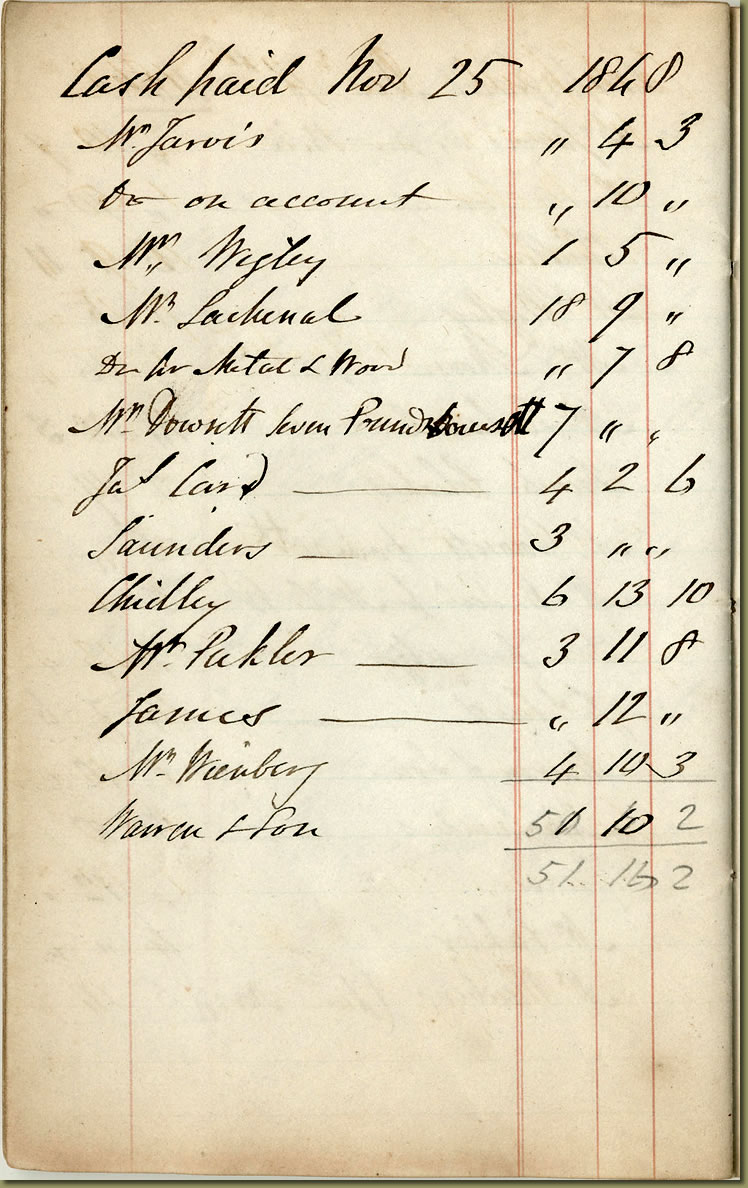 Cash paid Nov 25 1848
Mr. Jarvis " 4 3
Do on account " 10 "
Mr " Wigley 1 5 "
Mr. Lachenal 18 9 "
Do for Metal & Wood " 7 8
Mr Dowsett Seven Pounds Dowsett 7 " "
Jas Card 4 2 6
Saunders 3 " "
Chidley 6 13 10
Mr. Pickler 3 11 8
James " 12 "
Mr. Wienberg 4 10 3
Warren & Son 1 10 2
51. 16 2